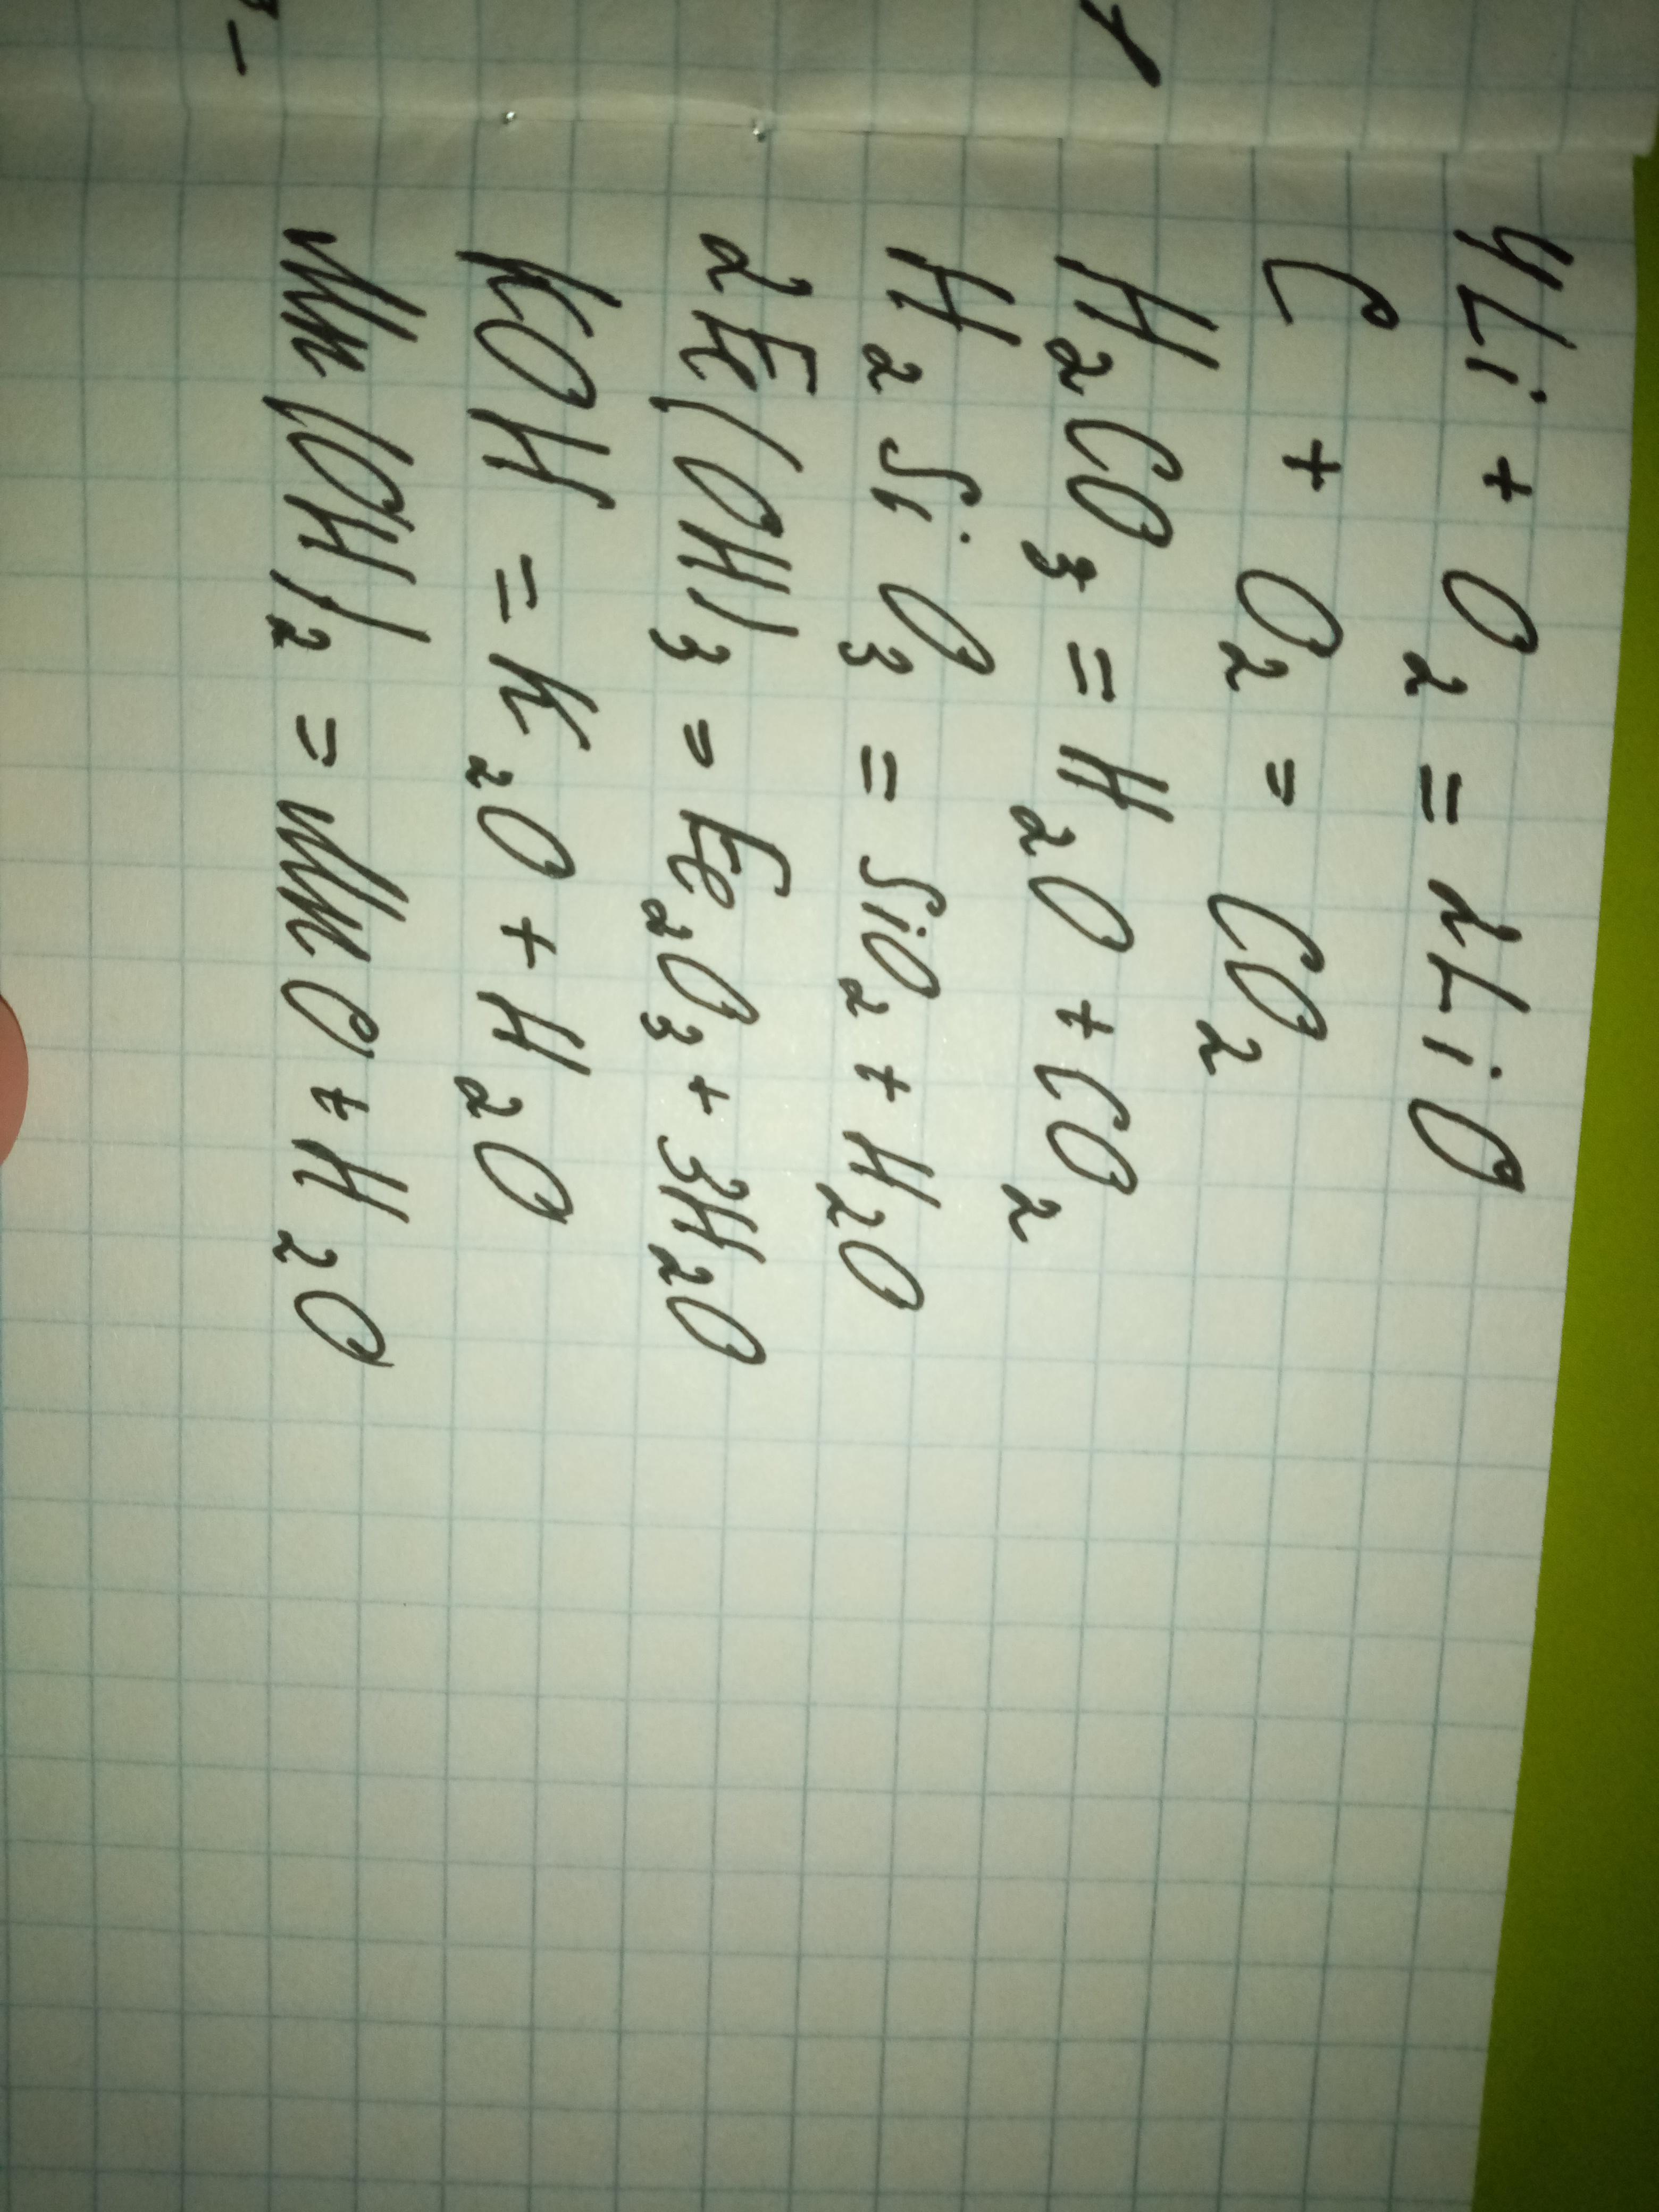 4Li + O₂ = 2LiO
C + O₂ = CO₂
H₂CO₃ = H₂O + CO₂
H₂SiO₃ = SiO₂ + H₂O
2Fe(OH)₃ = Fe₂O₃ + 3H₂O
KOH = K₂O + H₂O
Mn(OH)₂ = MnO + H₂O